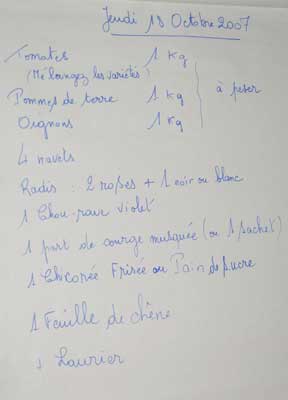 Jeudi 18 Octobre 2007
Tomates 1 Kg
(Mélangez les variétés)
Pommes de terre 1 Kg à peser
Oignons 1 Kg
4 navets
Radis : 2 roses + 1 noir ou blanc
1 Chou-rave violet
1 part de courge musquée (ou 1 sachet)
1 Chicorée Frisée ou Pain de sucre
1 Feuille de chêne
1 Laurier